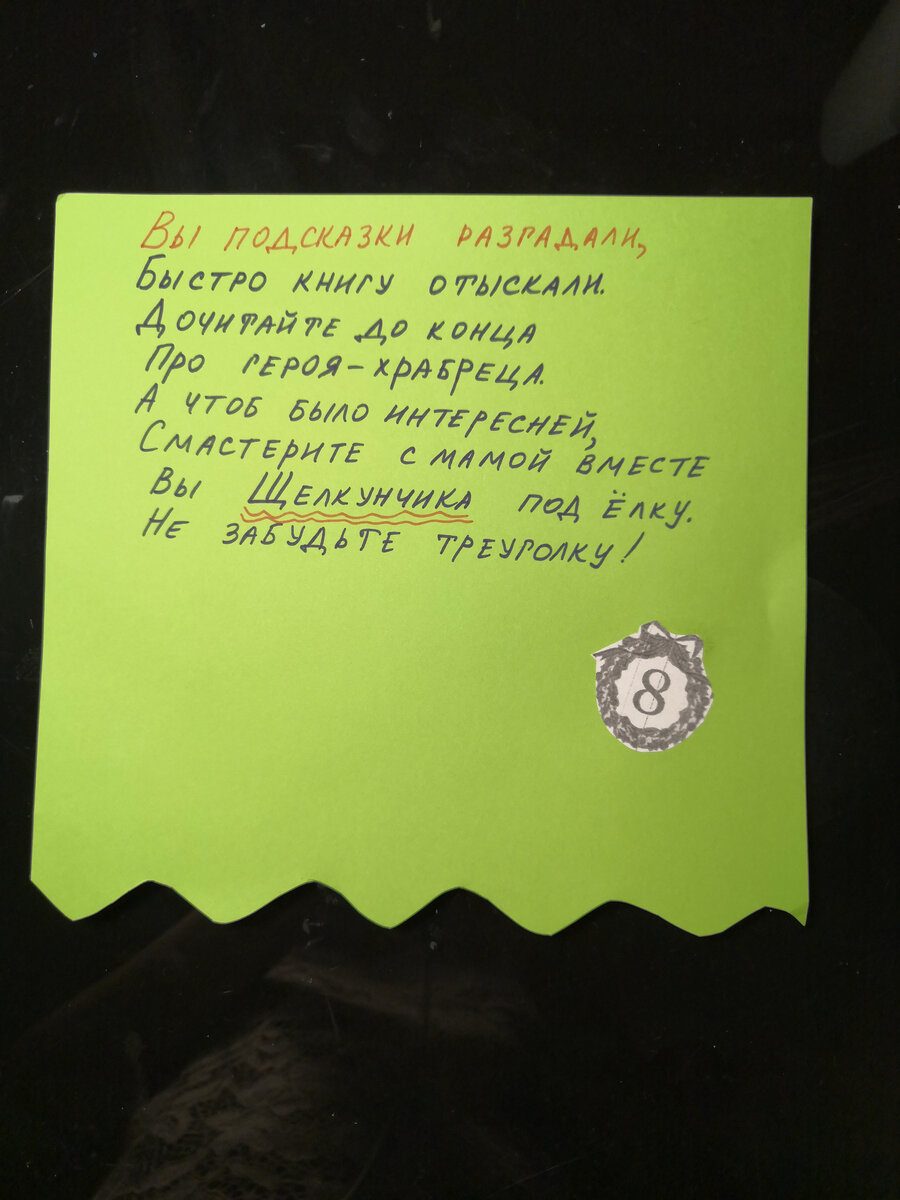 Вы подсказки разгадали,
Быстро книгу отыскали.
Дочитайте до конца
Про героя-храбреца.
А чтоб было интересней,
Смастерите с мамой вместе
Вы Щелкунчика под ёлку.
Не забудьте треуголку!
8